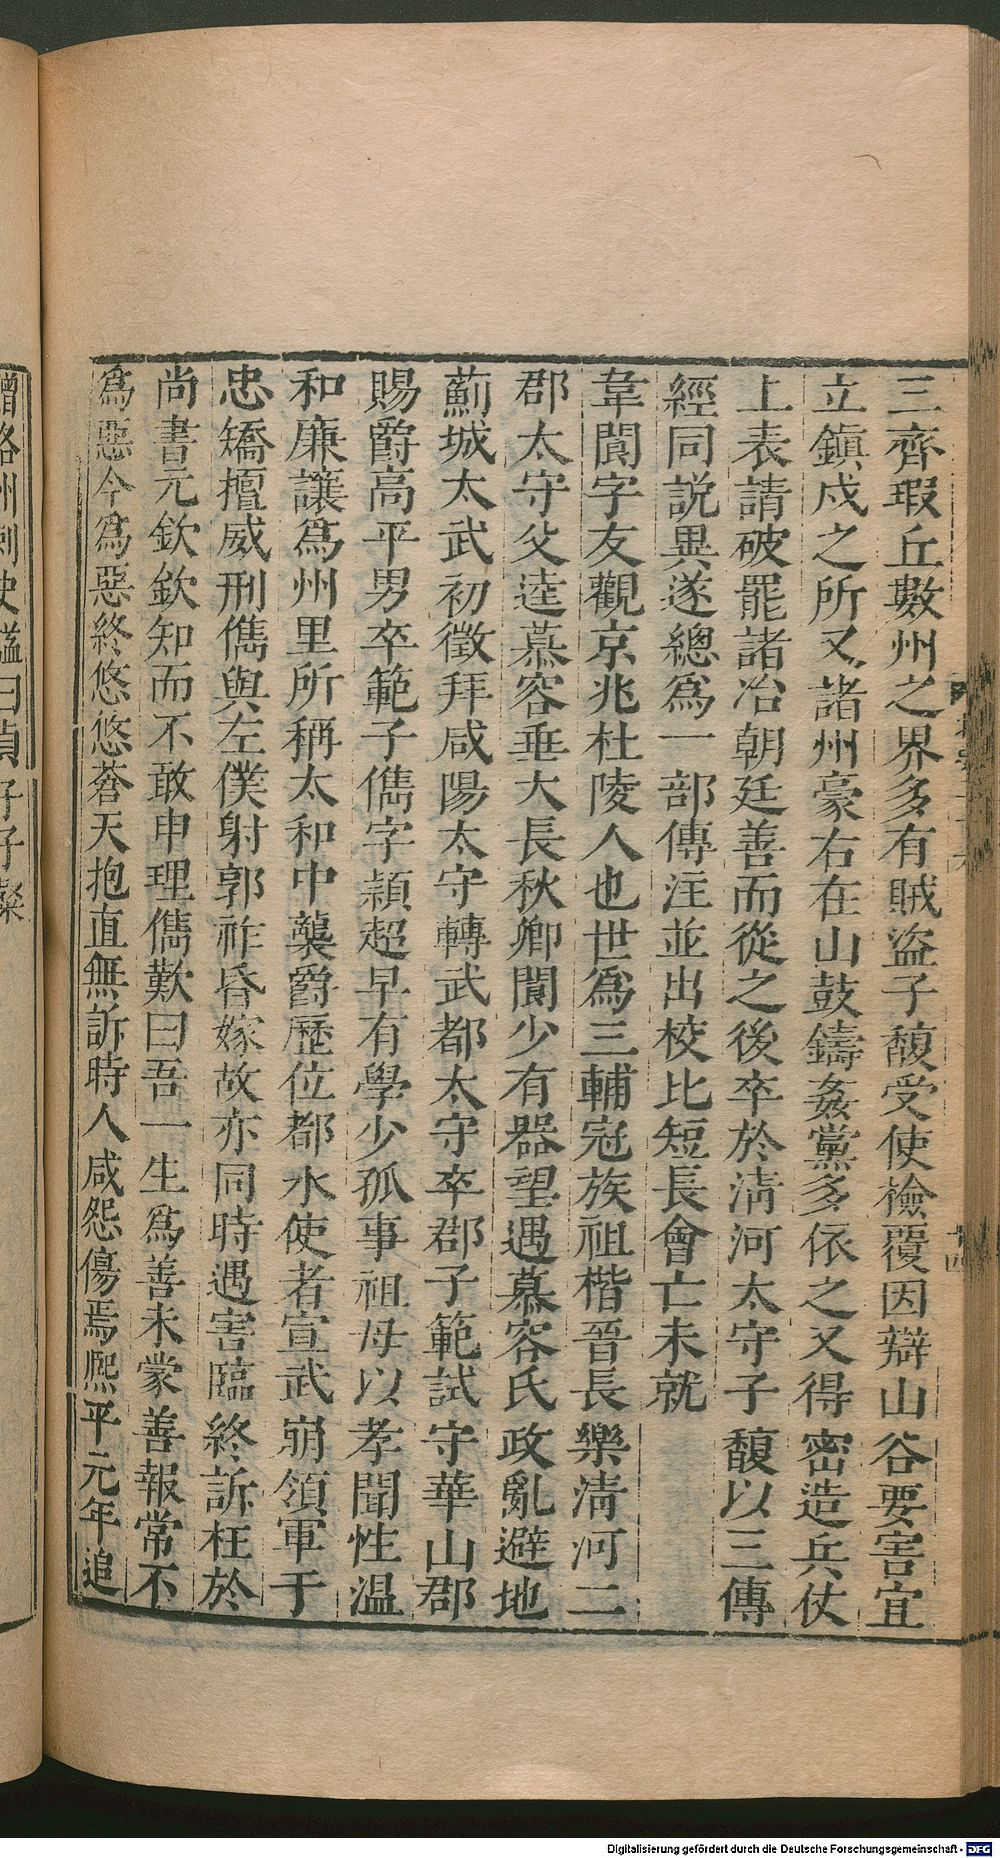 三齊瑕丘數州之界多有賊盜子馥受使檢覆因辯山谷要害宜
立鎮戍之所又諸州豪右在山鼓鑄姦黨多依之又得密造兵仗
上表請破罷諸冶朝廷善而從之後卒於淸河太守子馥以三傳
經同說異遂總爲一部傳注並出校比短長會亡未就
韋閬字友觀京兆杜陵人也世爲三輔冠族祖楷晉長樂淸河二
郡太守父逵慕容垂大長秋卿閬少有器望遇慕容氏政亂避地
薊城太武初徵拜咸陽太守轉武都太守卒郡子範試守華山郡
賜爵高平男卒範子儁字頴超早有學少孤事祖母以孝聞性温
和廉讓爲州里所稱太和中襲爵歷位都水使者宣武崩領軍于
忠矯擅威刑儁與左僕射郭祚昏嫁故亦同時遇害臨終訴枉於
尚書元欽欽知而不敢申理儁歎曰吾一生爲善未蒙善報常不
爲惡今爲惡終悠悠蒼天抱直無訴時人咸怨傷焉熈平元年追
贈洛州刺史謚曰貞子子粲
Digitalisierung gefördert durch die Deutsche Forschungsgemeinschaft - DFG